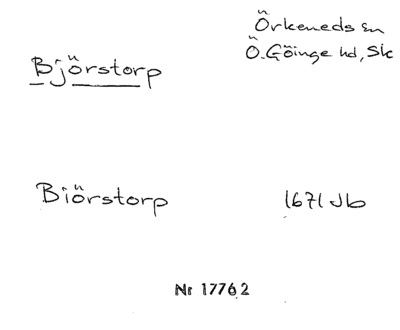 Örkeneds sn
Björstorp
Ö. Göinge hd, Sk
Biörstorp
1671 Jb
Nr 17762